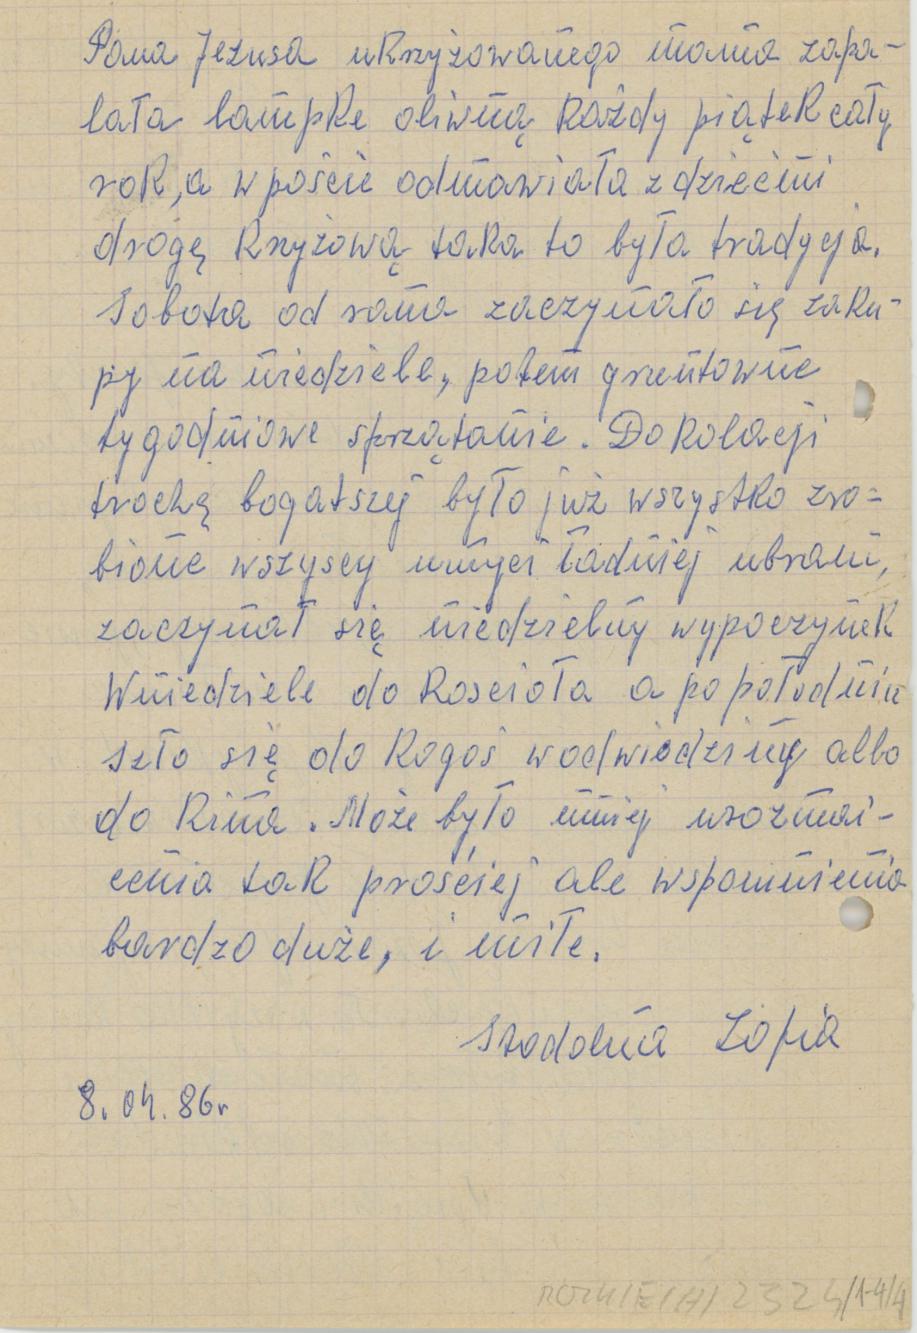 Pana Jezusa ukrzyżowanego mama zapa-
lała lampke oliwną każdy piątek cały
rok, a w poście odmawiała z dziećmi
drogę krzyżową taka to była tradycja.
Sobota od rana zaczynało się zaku-
py na niedziele, potem gruntowne
tygodniowe sprzątanie. Do kolacji
trochą bogatszej było już wszystko zro-
bione wszyscy umyci ładniej ubrani,
zaczynał się niedzielny wypoczynek
W niedziele do kościoła a po południu
szło się do kogoś w odwiedziny albo
do kina. Może było mniej urozmai-
cenia tak prościej ale wspomnienia
bardzo duże, i miłe.
Stodolna Zofia
8.04.86r
2324/1-4/4